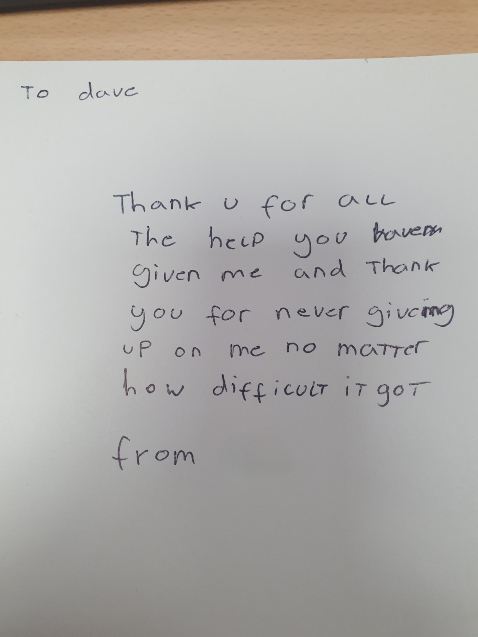 To dave
Thank u for all
The help you have
given me and Thank
you for never giving
up on me no matter
how difficult it got
from